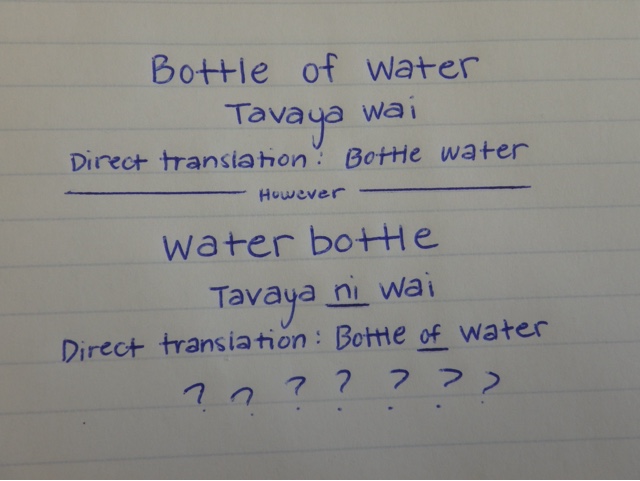 Bottle of water
Tavaya wai
Direct translation: Bottle water
However
Water bottle
Tavaya ni wai
Direct translation: Bottle of water
? ? ? ? ? ? ?